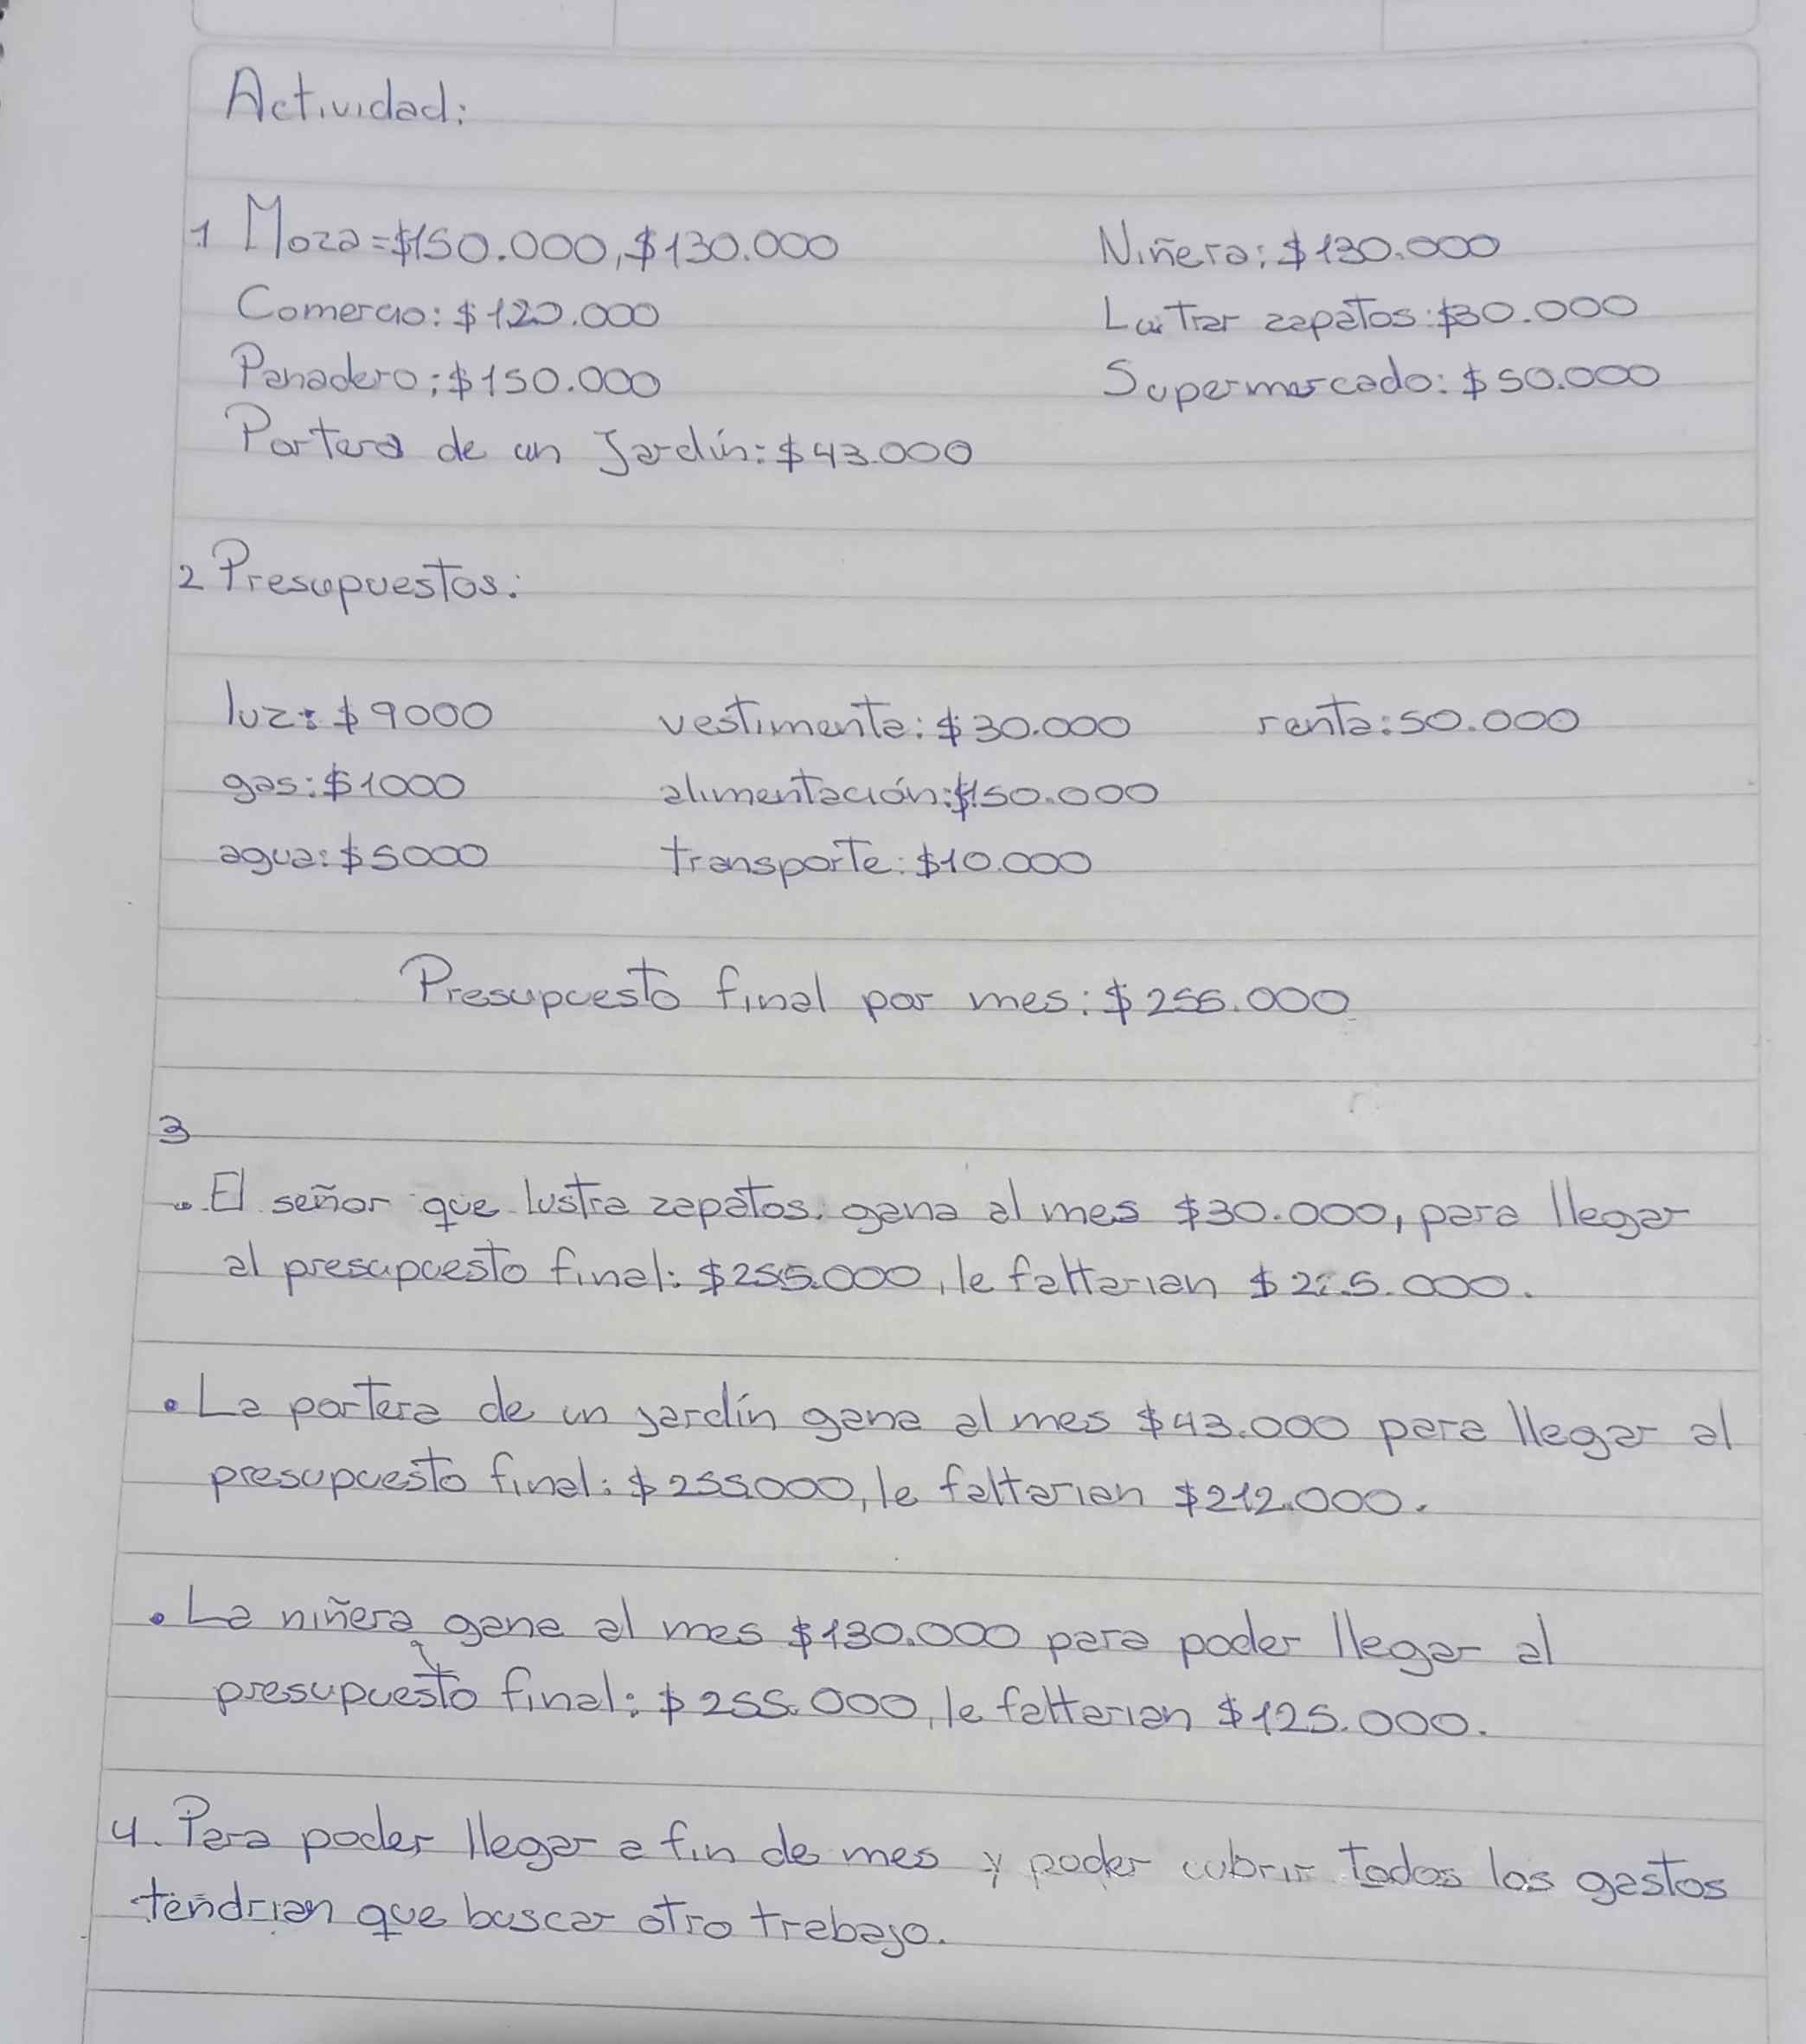 Actividad:
1 Moza=$150.000,$130.000 Niñera: $130.000
Comercio: $120.000 Lustrar zapatos: $30.000
Panadero: $150.000 Supermercado: $50.000
Portera de un Jardín: $43.000
2 Presupuestos:
luz: $9000 vestimenta: $30.000 renta: 50.000
gas: $1000 alimentación: $150.000
agua: $5000 transporte: $10.000
Presupuesto final por mes: $255.000
3
• El señor que lustra zapatos. gana al mes $30.000, para llegar
al presupuesto final: $255.000, le faltarian
• La portera de un jardín gana al mes $43.000 para llegar al
presupuesto final: $255000, le faltarian $212.000.
• La niñera gana al mes $130.000 para poder llegar al
presupuesto final: $255.000, le faltarian $125.000.
4. Para poder llegar a fin de mes y poder cubrir todos los gastos
tendrian que buscar otro trabajo.